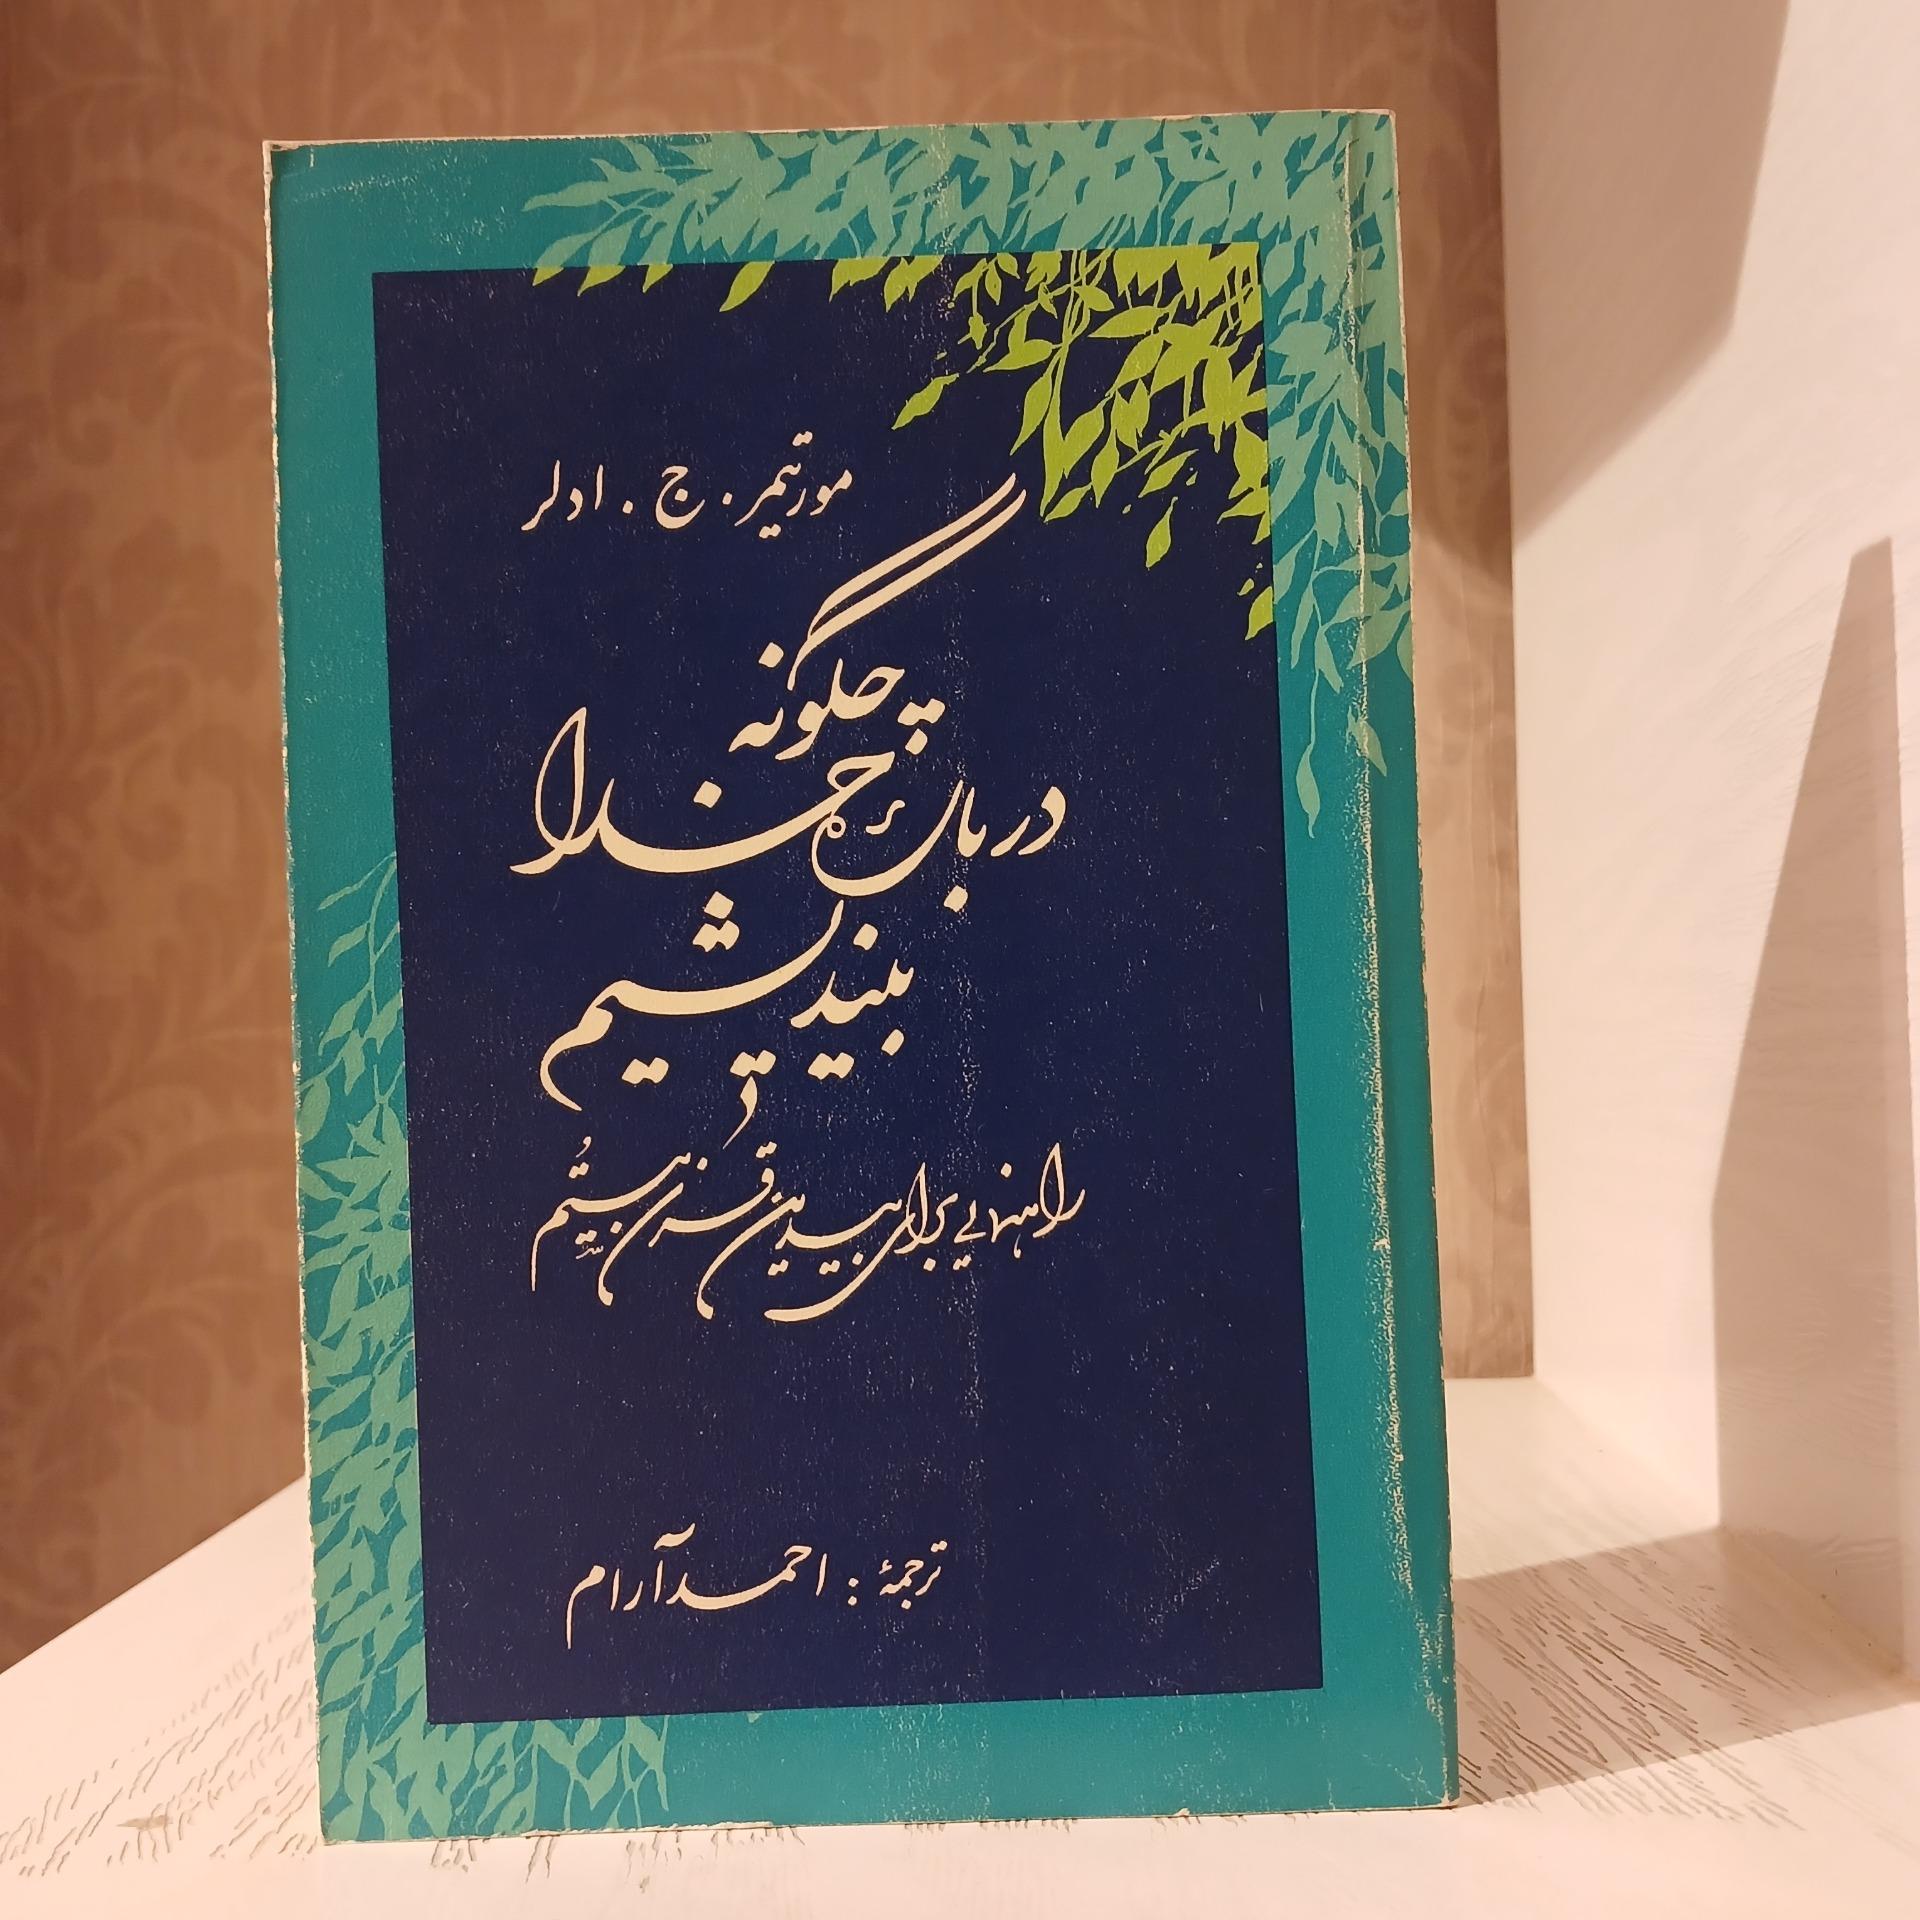 مورتیمر. ج. ادلر
چگونه
دربارهٔ خدا
بیندیشیم
راهنمایی برای بیدینان قرن بیستم
ترجمهٔ: احمد آرام